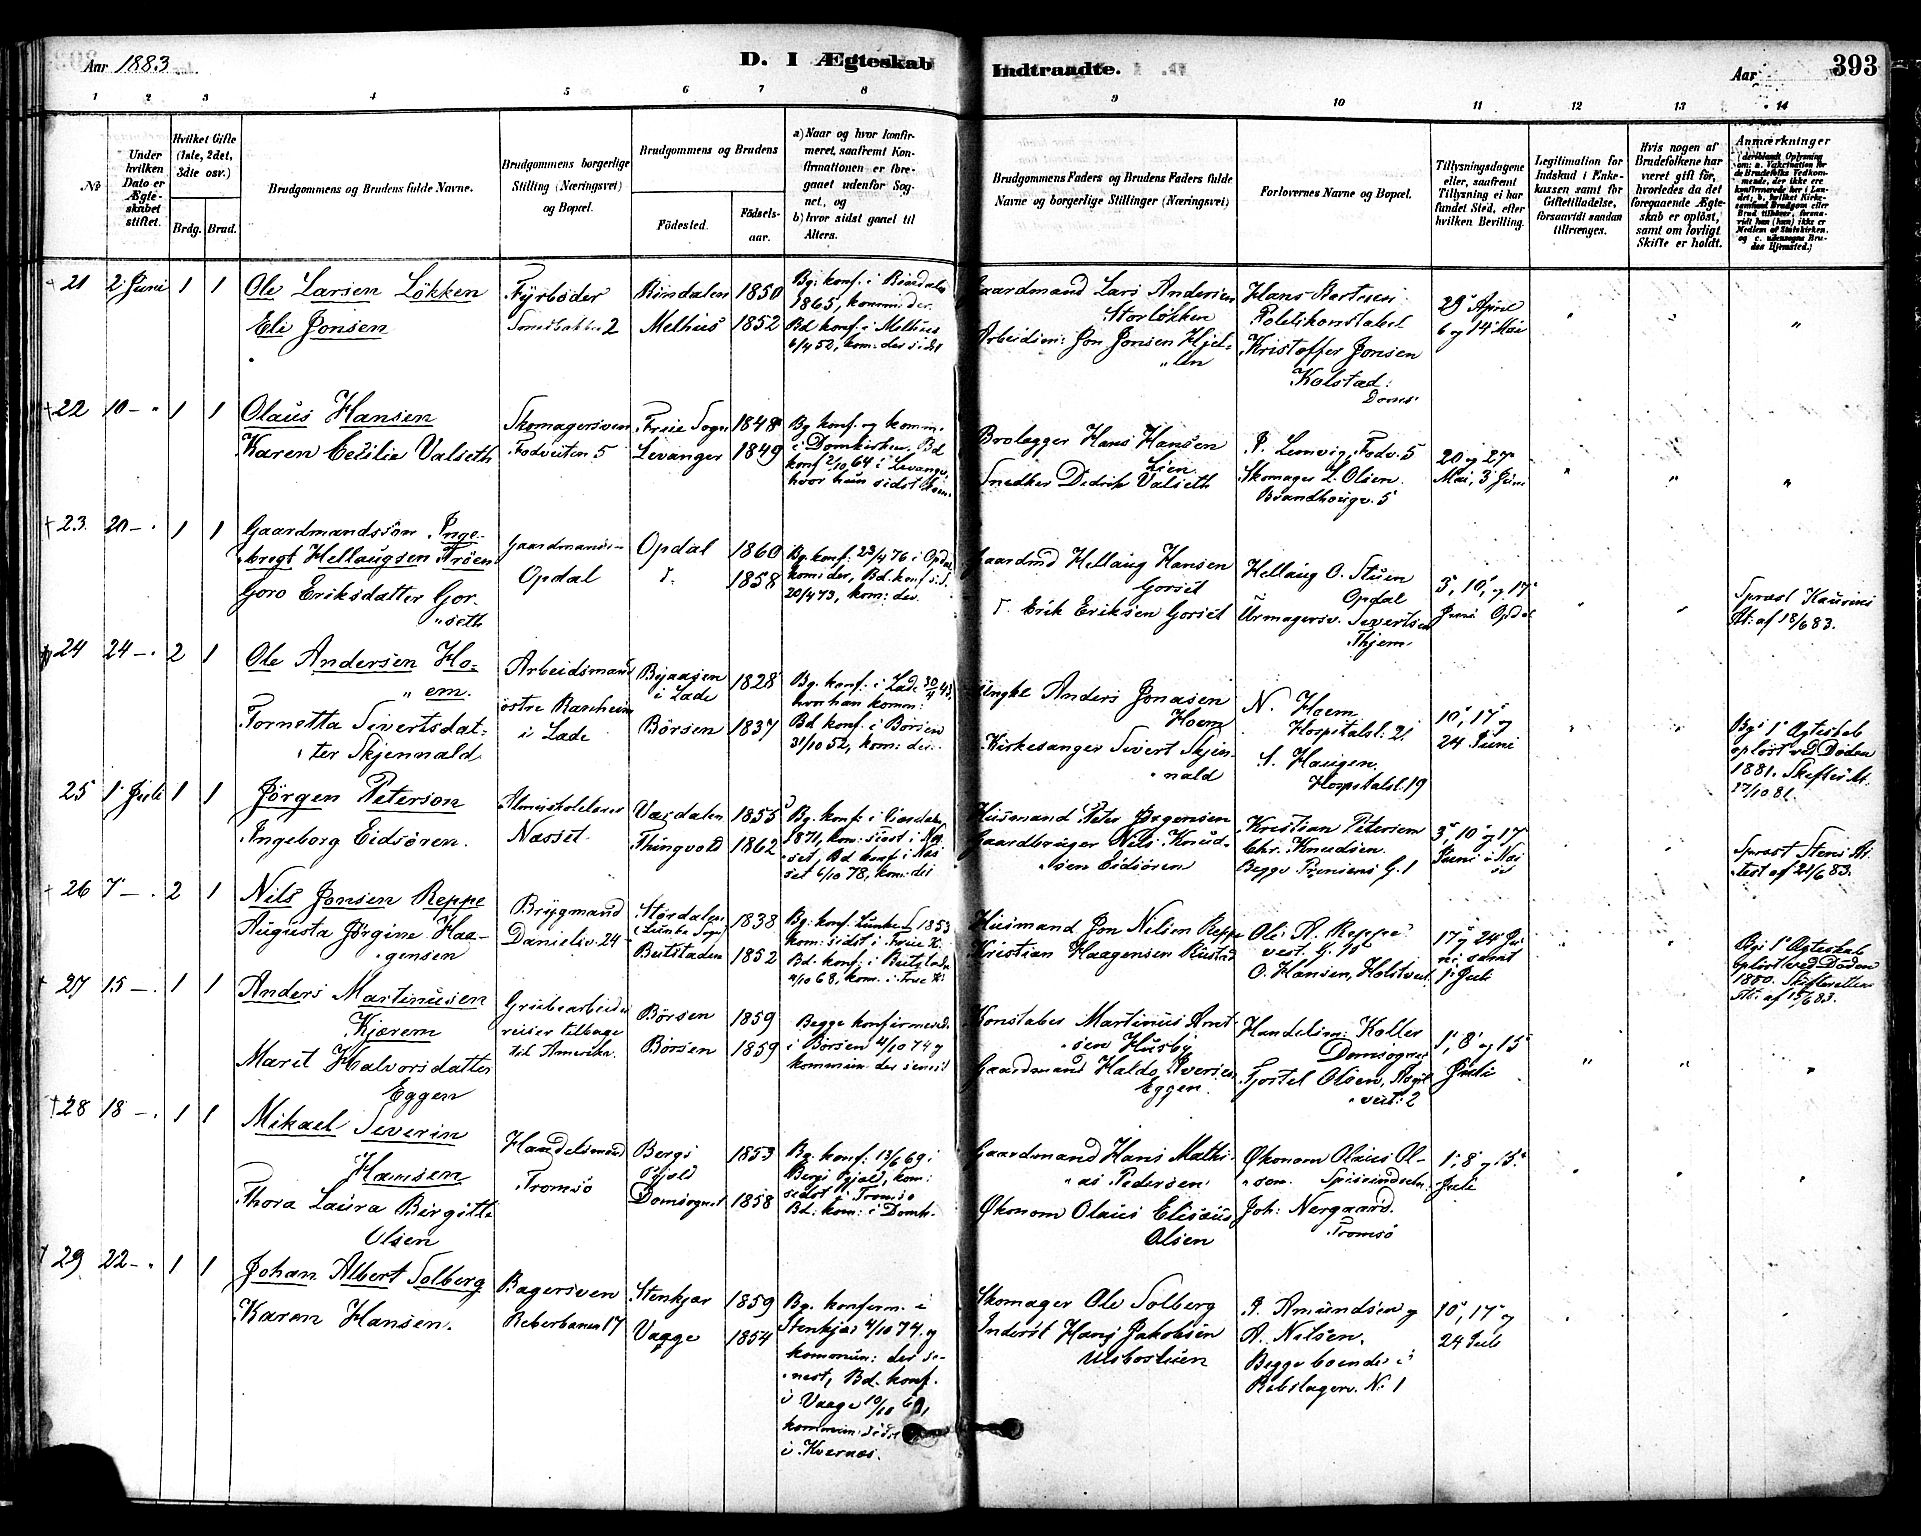 Aar 1883.
D. I Ægteskab
Indtraadte.
Aar
393
1 2 3 4 5 6 7 8 9 10 11 12 13 14
No
Under hvilken Dato er Ægteskabet stiftet.
Hvilket Gifte (1ste, 2det, 3die osv.)
Brdg. Brud.
Brudgommens og Brudens fulde Navne.
Brudgommens borgerlige Stilling (Næringsvei) og Bopæl.
Brudgommens og Brudens
Fødested.
Fødsels-aar.
a) Naar og hvor konfirmeret, saafremt Konfirmationen er foregaaet udenfor Sognet, og
b) hvor sidst gaaet til Alters.
Brudgommens Faders og Brudens Faders fulde Navne og borgerlige Stillinger (Næringsvei)
Forlovernes Navne og Bopæl.
Tillysningsdagene eller, saafremt Tillysning ei har fundet Sted, efter hvilken Bevilling.
Legitimation for Indskud i Enkekassen samt for Giftetilladelse, forsaavidt saadan tiltrænges.
Hvis nogen af Brudefolkene har været gift før, hvorledes da det foregaaende Ægteskab er opløst, samt om lovligt Skifte er holdt.
Anmærkninger
21 2 Juni 1 1
Ole Larsen Løkken
Eli Jonsen
Fyrbøder
Rindalen 1850
Melhus 1852
Bg: konf. i Rindalen
1865, komm: der.
Bd konf. i Melhus
6/4 52, kom: der sidst
Gaardmand Lars Andersen
Storløkken
Arbeidsm: Jon Jonsen Hjel-
Politikonstabel
Kristoffer Jonsen
Kolstad:
29 April
6 og 14 Mai
22 10 — 1 1
Olaus Hansen
Karen Cecilie Valseth
Skomagersven
Fodveiten 5
Freie Sogn 1848
Levanger 1849
Bg konf. og komm.
i Domkirken. Bd
konf 2/10 64 i Levanger
hvor hun sidst kom.
Brolegger Hans Hansen
Lien
Snedker Didrik Valseth
P. Lemvig, Fodv. 5
Skomager L. Olsen.
Brandhougv. 5
20 og 27
Mai, 3 Juni
23. 20 — 1 1
Gaardmandssøn Inge-
brigt Hellaugsen Trøen
Goro Eriksdatter Gor-
seth
Gaardmandss-
Opdal
Opdal 1860
1858
Bg. konf: 23/4 76 i Opdal
kom: der, Bd. konf s. S.
20/4 73, kom: der
Gaardmd Hellaug Hansen
Gorset
Erik Eriksen Gorset
Hellaug O. Stuen
Opdal
Urmagersv. Sivertsen
Thjem
3, 10, og 17
Juni Opdal
At: af 18/6 83.
24 24 — 2 1
Ole Andersen Ho-
em.
Tornetta Sivertsdat-
ter Skjennald
Arbeidsmand
østre Ranheim
i Lade
i Lade 1828
Børsen 1837
Bg. konf: i Lade
hvor han komm:
Bd konf. i Børsen
31/10 52, kom: der.
Anders Jonasen
Hoem
Kirkesanger Sivert Skjen-
nald
N. Hoem
Hospitalsl: 21
S. Haugen.
Hospitalsl. 19
10, 17 og
24 Juni
Bgs 1 Ægteskab
opløst ved Døden
1881. Skifter. At.
17/10 81.
25 1 Juli 1 1
Jørgen Peterson
Ingeborg Eidsøren.
Almueskolelærer
Næsset.
Værdalen 1855
Thingvold 1862
Bg. konf: i Værdalen
1871, kom. sidst i Næs-
set, Bd konf. i Næs
set 6/10 78, kom: der
Husmand Peter Jørgensen
Gaardbruger Nils Knud-
sen Eidsøren
Kristian Petersen
Chr. Knudsen.
Begge Prinsens G. 1
3, 10 og 17
Juni i Næs
test af 21/6 83.
26 7 — 2 1
Nils Jonsen Reppe
Augusta Jørgine Haa-
gensen
Brygmand
Danielsv. 24
Størdalen
1838
Beitstaden 1852
1853
kom: sidst i Frue K:
Bd. konf: i Beitstaden
Husmand Jon Nilsen Reppe
Kristian Haagensen Rustad
Ole A. Reppe
vest. G. 10
O. Hansen, Holstveit
17 og 24 Ju
ni samt
1 Juli
Bgs 1 Ægteskab
opløst ved Døden
1880. Skifteretten
At: af 15/6 83.
27 15 — 1 1
Anders Martinusen
Kjærem
Marit Halvorsdatter
Eggen
Grubearbeider
reiser tilbage
til Amerika.
Børsen 1859
Børsen 1859
Begge konfirmered.
i Børsen 4/10 74 og
kommun. der senest
Konstabel Martinus Arnt-
sen Husby
Gaardmand Iversen
Eggen.
Handelsm: Koller
Domsognet
Olsen,
veit: 2
1, 8 og 15
Juli
28 18 — 1 1
Mikael Severin
Hansen
Thora Laura Birgitte
Olsen
Handelsmand
Tromsø
Bergs
1853
Domsognet 1858
Bg. konf: 13/6 69 i
sidst i Tromsø
Bd: kom: i Domk.
Gaardmand Hans Mathi-
as Pedersen
Økonom Olaus Eliseus
Olsen
Økonom Olaus Ol-
sen.
Joh: Nergaard.
Tromsø
1, 8 og 15.
Juli
29 22 — 1 1
Johan Albert Solberg
Karen Hansen.
Bagersven
Reberbanen 17
Stenkjær 1859
Vaage 1854
Bg. konferm. i
Stenkjær 4/10 74. og
kommun: der se-
nest, Bd. konf.
i Vaage
kommun: sidst
i Kvernæs.
Skomager Ole Solberg
Inderst Hans Jakobsen
P. Amundsen og
A. Nilsen.
Begge boende i
Rebslagerv. N: 1
10, 17 og
24 Juli